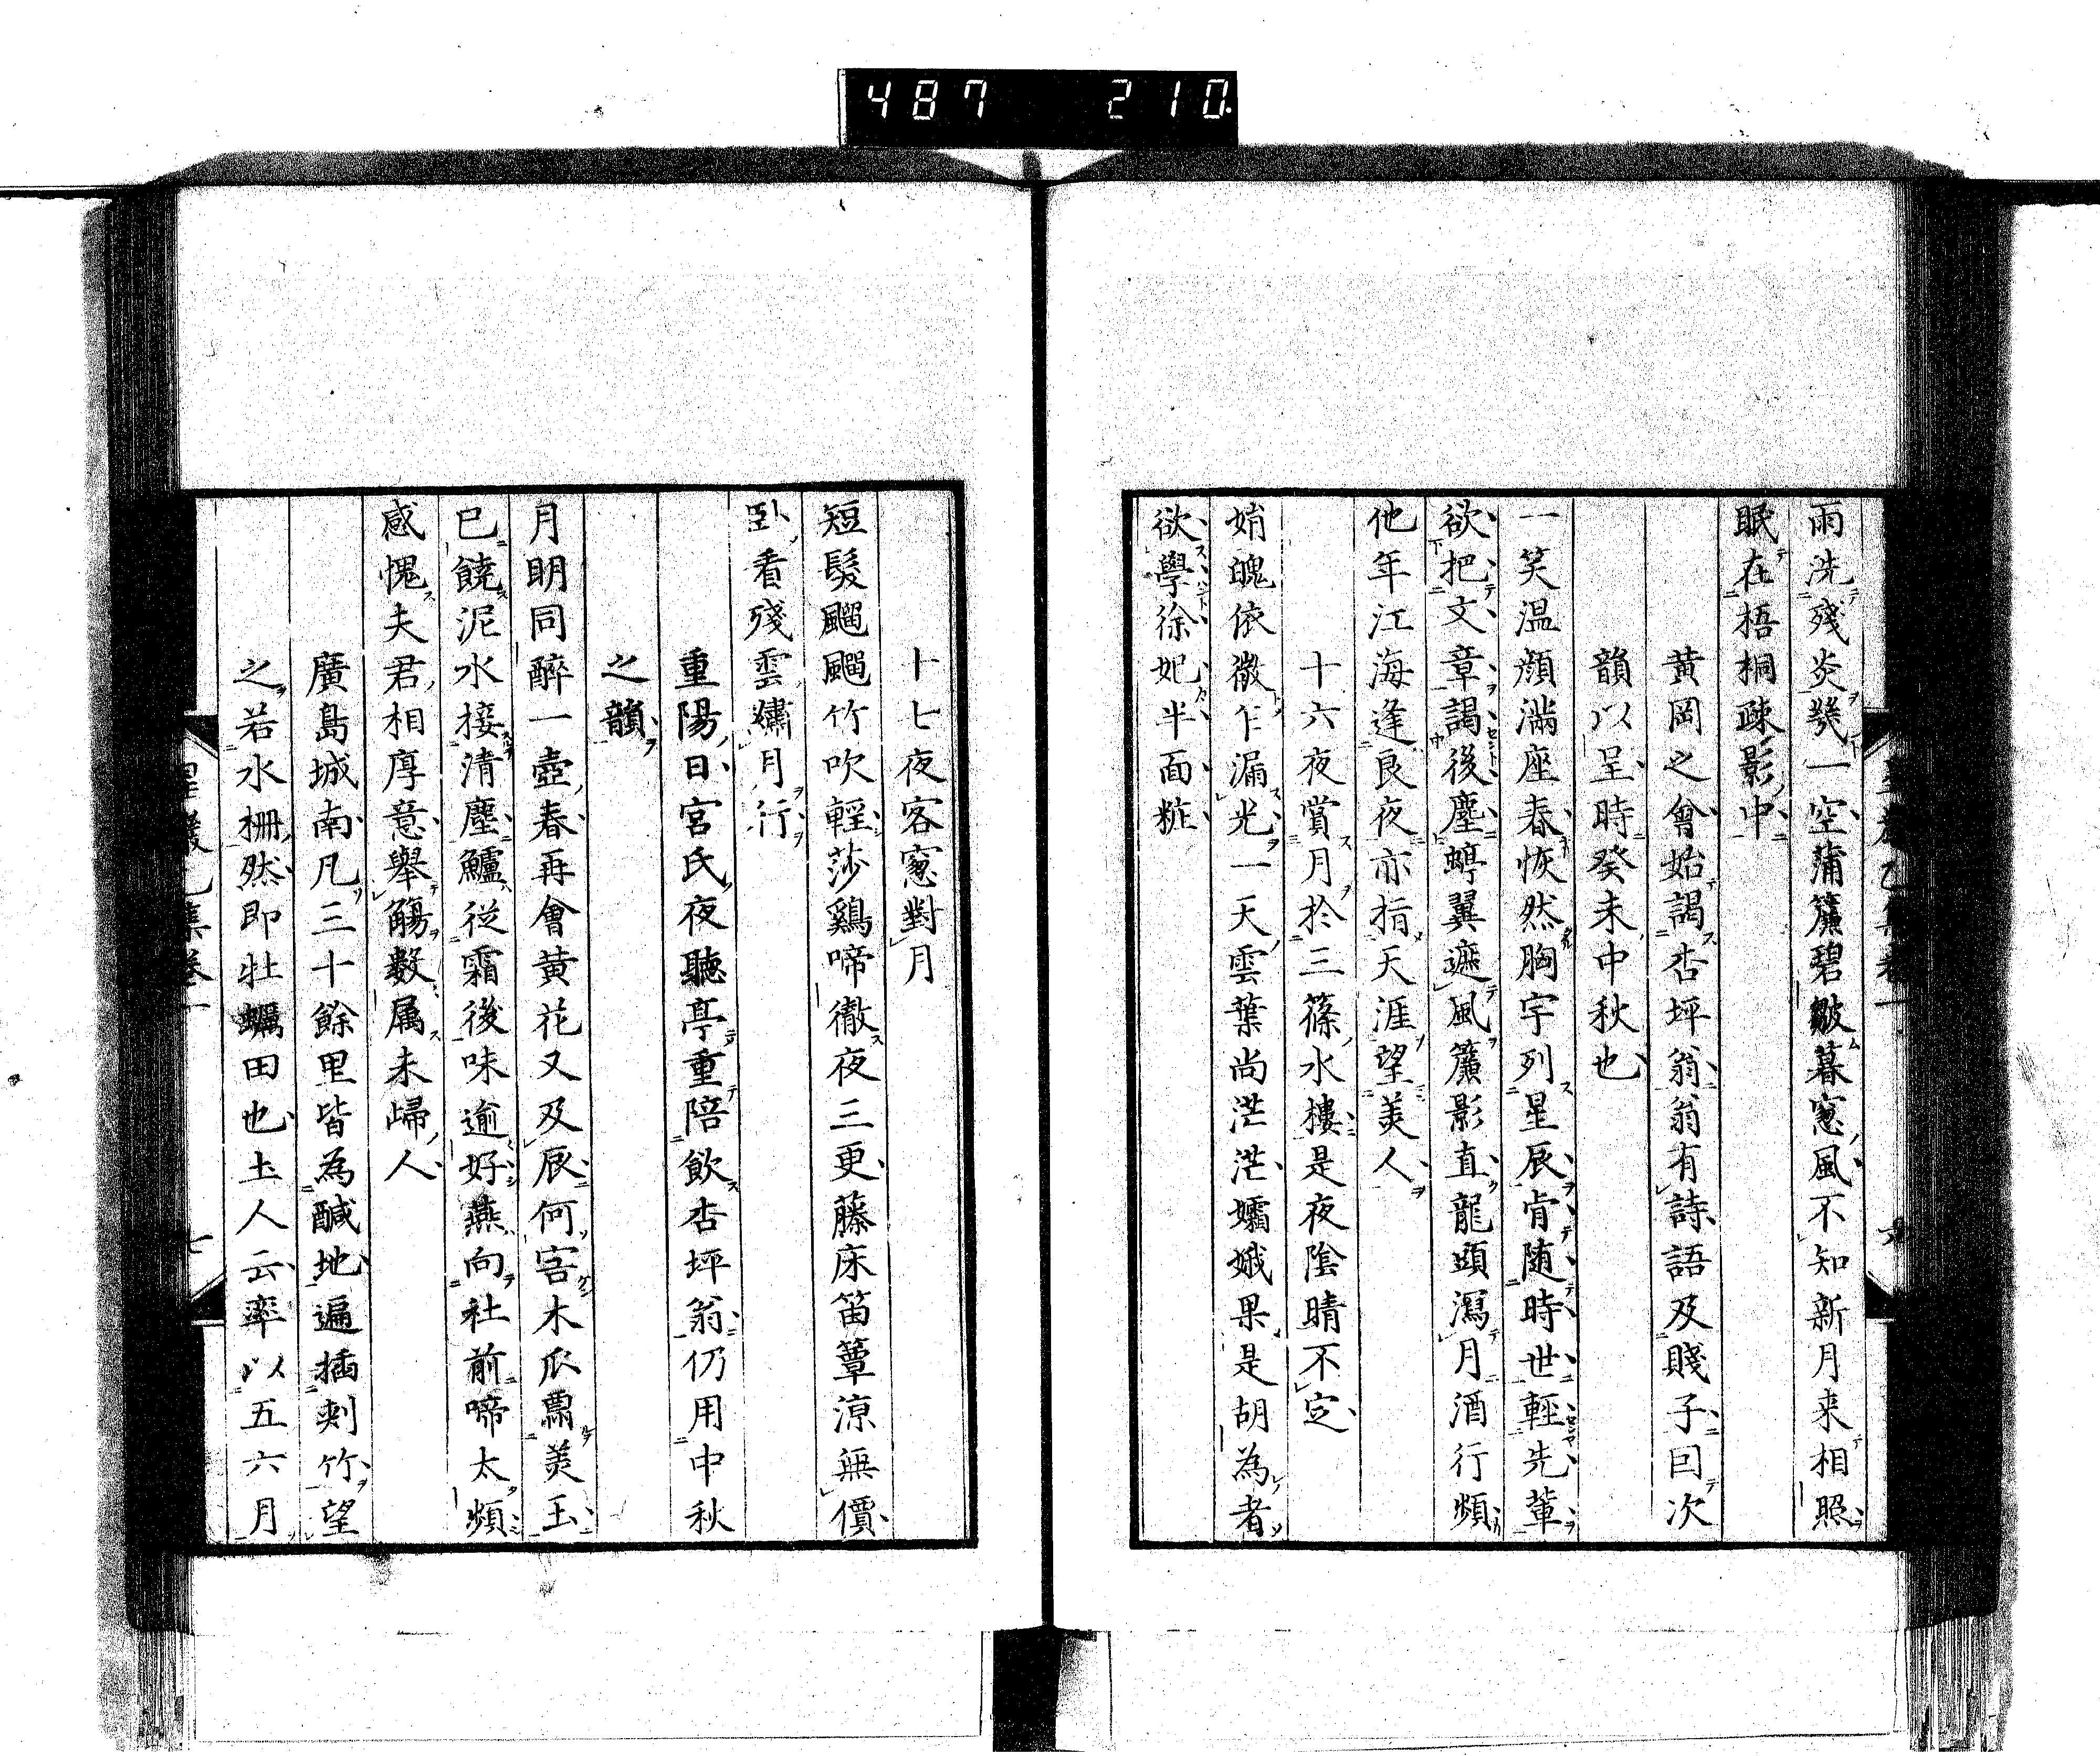 487 210
雨洗殘炎發一空蒲簾碧皺暮窻風不知新月来相照
眠在梧桐疎影中
黄岡之會始謁杏坪翁翁有詩語及賤子因次
韻以呈時癸未中秋也
一笑温顔滿座春恢然胸宇列星辰肯随時世輕先輩
欲把文章謁後塵蝉翼遮風簾影直龍頭瀉月酒行頻
他年江海逢良夜亦指天涯望美人
十六夜賞月於三篠水樓是夜陰晴不定
娟魄依微乍漏光一天雲葉尚茫茫孀娥果是胡為者
欲學徐妃半面粧
十七夜客窻對月
短髮颸颸竹吹輕莎鷄啼徹夜三更藤床笛簟凉無價
臥看殘雲繍月行
重陽日宮氏夜聽亭重陪飲杏坪翁仍用中秋
之韻
月明同醉一壺春再會黄花又及辰何害木瓜霑美玉
已饒泥水接清塵鱸従霜後味逾好燕向社前啼太頻
感愧夫君相厚意舉觴数属未歸人
廣島城南凡三十餘里皆為鹹地遍插刺竹望
之若水柵然即牡蠣田也土人云率以五六月